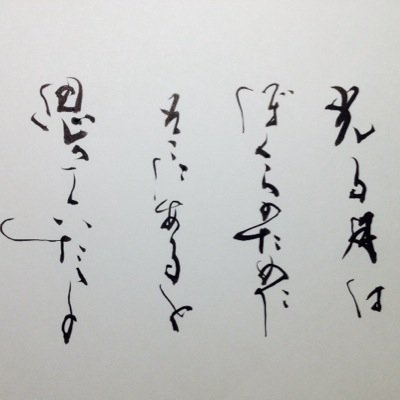 光る は
ぼくらのために
そこにあると
思っていた